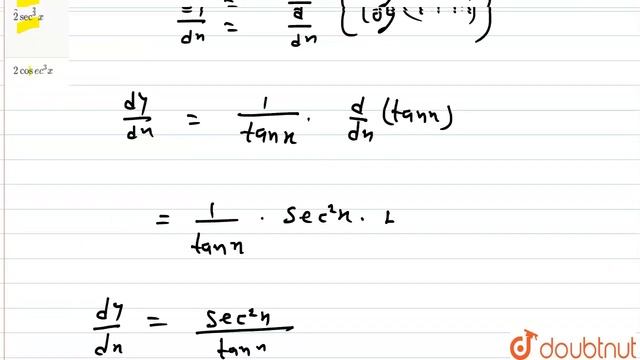 2 sec³ x
2 cosec³ x
dy/dx = d/dx
dy/dx = 1/tan x · d/dx (tan x)
= 1/tan x · sec²x · 1
dy/dx = sec²x / tan x
doubtnut